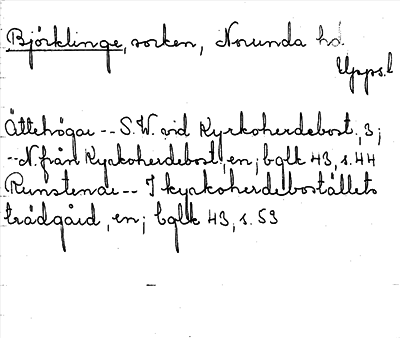 Björklinge, socken, Norunda hd.
Upps. l
Ättehögar -- S.W. vid Kyrkoherdebost., 3;
-- N. från Kyrkoherdebost., en; bglk 43, s. 44
Runstenar -- I kyrkoherdeboställets
trädgård, en; bglk 43, s. 53